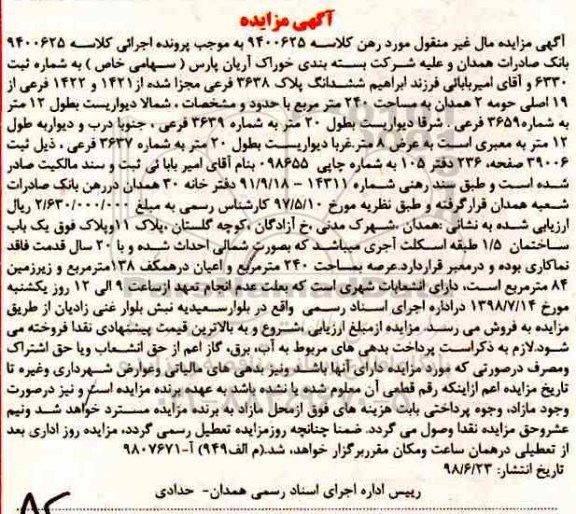 آگهی مزایده
آگهی مزایده مال غیر منقول مورد رهن کلاسه ۹۴۰۰۶۲۵ به موجب پرونده اجرائی کلاسه ۹۴۰۰۶۲۵
بانک صادرات همدان و علیه شرکت بسته بندی خوراک آریان پارس ( سهامی خاص ) به شماره ثبت
۶۳۳۰ و آقای امیربابائی فرزند ابراهیم ششدانگ پلاک ۳۶۳۸ فرعی مجزا شده از۱۴۲۱ و ۱۴۲۲ فرعی از
۱۹ اصلی حومه ۲ همدان به مساحت ۲۴۰ متر مربع با حدود و مشخصات ، شمالا دیواریست بطول ۱۲ متر
به شماره۳۶۵۹ فرعی . شرقا دیواریست بطول ۲۰ متر به شماره ۳۶۳۹ فرعی ، جنوبا درب و دیواربه طول
۱۲ متر به معبری است به عرض ۸ متر.غربا دیواریست بطول ۲۰ متر به شماره ۳۶۳۷ فرعی ، ذیل ثبت
۳۹۰۰۶ صفحه، ۲۳۶ دفتر ۱۰۵ به شماره چاپی ۰۹۸۶۵۵ بنام آقای امیر بابا ئی ثبت و سند مالکیت صادر
شده است و طبق سند رهنی شماره ۱۴۳۱۱ – ۹۱/۹/۱۸ دفتر خانه ۳۰ همدان دررهن بانک صادرات
شعبه همدان قرارگرفته و طبق نظریه مورخ ۹۷/۵/۱۰ کارشناس رسمی به مبلغ ۲/۶۳۰/۰۰۰/۰۰۰ ریال
ارزیابی شده به نشانی :همدان ،شهرک مدنی ،خ آزادگان ،کوچه گلستان ،پلاک ۱۱وپلاک فوق یک باب
ساختمان ۱/۵ طبقه اسکلت آجری میباشد که بصورت شمالی احداث شده و با ۲۰ سال قدمت فاقد
نماکاری بوده و درمعبر قراردارد.عرصه بمساحت ۲۴۰ مترمربع و اعیان درهمکف ۱۳۸مترمربع و زیرزمین
۸۴ مترمربع است، دارای انشعابات شهری است که بعلت عدم انجام تعهد ازساعت ۹ الی ۱۲ روز یکشنبه
مورخ ۱۳۹۸/۷/۱۴ دراداره اجرای اسناد رسمی واقع در بلوارسعیدیه نبش بلوار غنی زادیان از طریق
مزایده به فروش می رسد. مزایده ازمبلغ ارزیابی ،شروع و به بالاترین قیمت پیشنهادی نقدا فروخته می
شود.لازم به ذکراست پرداخت بدهی های مربوط به آب، برق، گاز اعم از حق انشعاب ویا حق اشتراک
ومصرف درصورتی که مورد مزایده دارای آنها باشد ونیز بدهی های مالیاتی وعوارض شهرداری وغیره تا
تاریخ مزایده اعم ازاینکه رقم قطعی آن معلوم شده یا نشده باشد به عهده برنده مزایده است و نیز درصورت
وجود مازاد، وجوه پرداختی بابت هزینه های فوق ازمحل مازاد به برنده مزایده مسترد خواهد شد ونیم
عشروحق مزایده نقدا وصول می گردد. ضمنا چنانچه روزمزایده تعطیل رسمی گردد، مزایده روز اداری بعد
از تعطیلی درهمان ساعت ومکان مقرربرگزار خواهد، شد.(م الف۹۴۹) آ-۹۸۰۷۶۷۱
تاریخ انتشار: ۹۸/۶/۲۳
رییس اداره اجرای اسناد رسمی همدان- حدادی